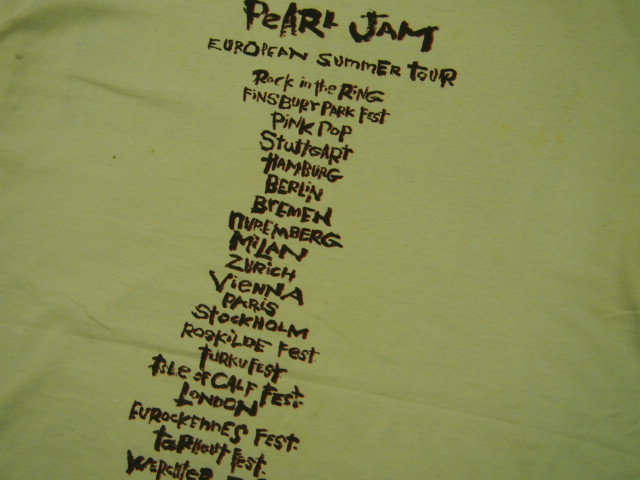 PEARL JAM
EUROPEAN SUMMER TOUR
Rock in the RING
FINSBURY PARK FEST
PINK POP
STUTTGART
HAMBURG
BERLIN
BREMEN
NUREMBERG
MILAN
ZURICH
VIENNA
PARIS
STOCKHOLM
ROSKILDE FEST
TURKU FEST
ISLE of CALF FEST.
LONDON
EUROCKENNES FEST.
TORHOUT FEST.
WERCHTER